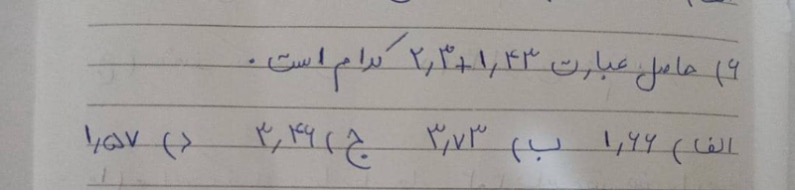 ۶) حاصل عبارت ۲,۳+۱,۴۳ کدام است.
الف) ۱,۶۶ ب) ۳,۷۳ ج) ۳,۴۶ د) ۱,۵۷